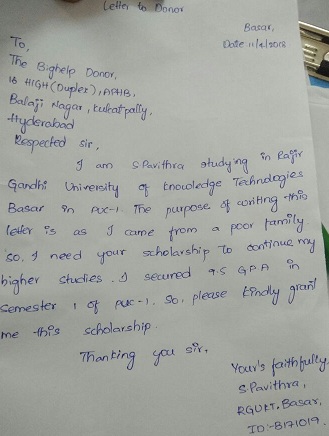 Letter to Donor
Basar,
Date 11/4/2018
To,
The Bighelp Donor,
16 HIGH (Duplex), APHB,
Balaji Nagar, Kukatpally,
Hyderabad
Respected sir,
I am S Pavithra studying in Rajiv
Gandhi University of Knowledge Technologies
Basar in PUC-1. The purpose of writing this
letter is as I came from a poor family
so. I need your scholarship To continue my
higher studies. I secured 9.5 GPA in
Semester 1 of PUC-1. So, please kindly grant
me this scholarship.
Thanking you sir.
Your's faithfully,
S.Pavithra,
RGUKT. Basar,
ID:-B171019.